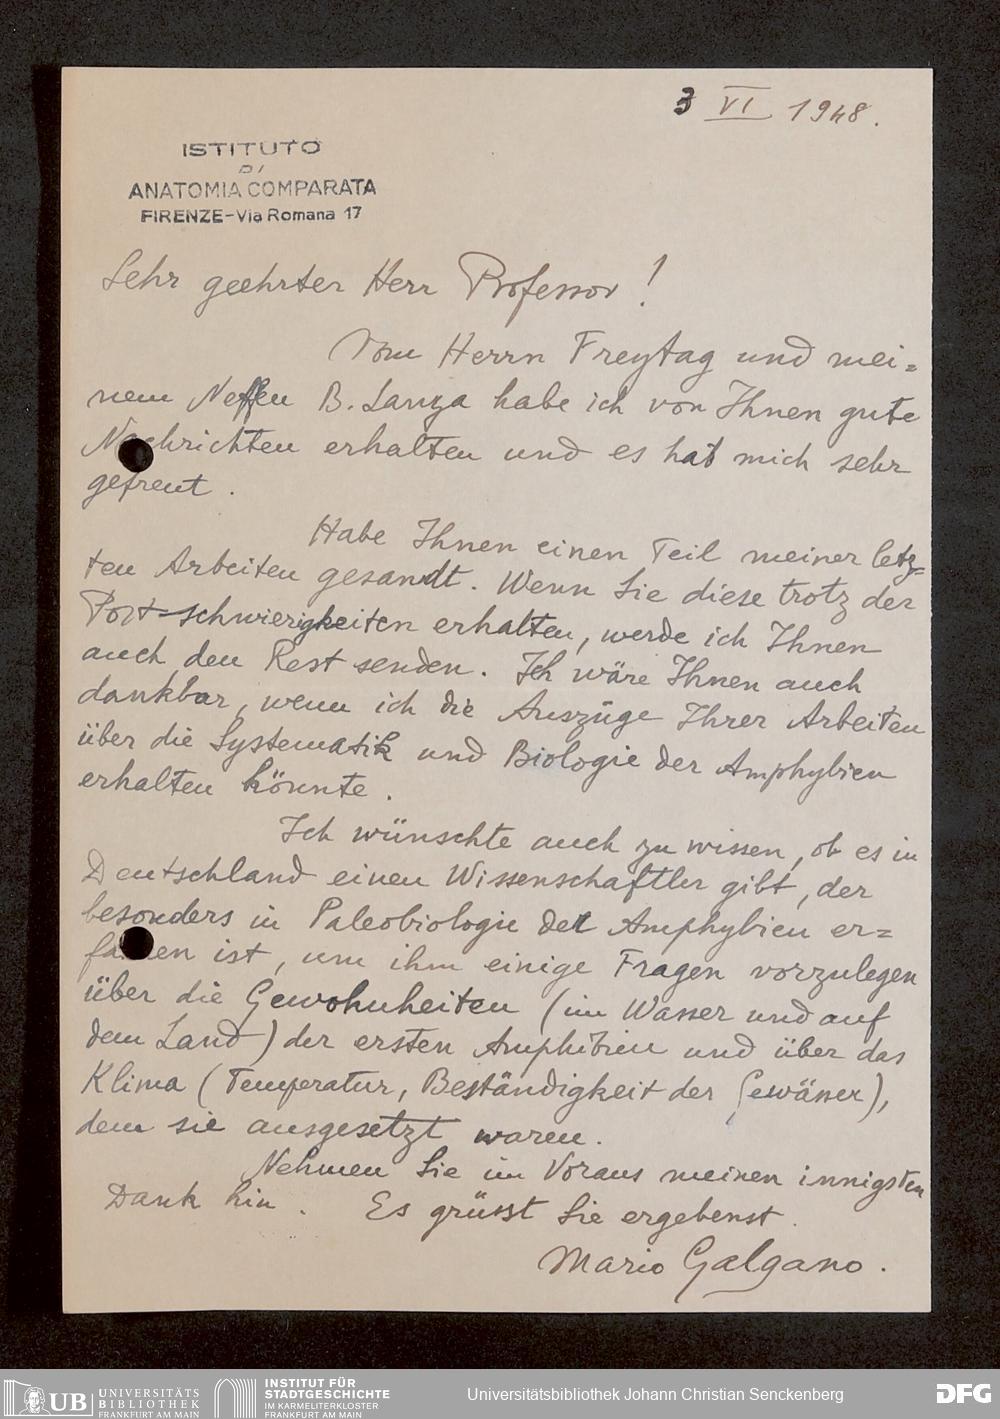 3 VI 1948.
ISTITUTO
DI
ANATOMIA COMPARATA
FIRENZE-Via Romana 17
Sehr geehrter Herr Professor!
Vom Herrn Freytag und mei=
nem Neffen B. Lanza habe ich von Ihnen gute
Nachrichten erhalten und es hat mich sehr
gefreut.
Habe Ihnen einen Teil meiner letz=
ten Arbeiten gesandt. Wenn Sie diese trotz der
Post-schwierigkeiten erhalten, werde ich Ihnen
auch den Rest senden. Ich wäre Ihnen auch
dankbar, wenn ich die Auszüge Ihrer Arbeiten
über die Systematik und Biologie der Amphybien
erhalten könnte.
Ich wünschte auch zu wissen, ob es in
Deutschland einen Wissenschaftler gibt, der
besonders in Paleobiologie der Amphybien er=
fahren ist, um ihm einige Fragen vorzulegen
über die Gewohnheiten (im Wasser und auf
dem Land) der ersten Amphibien und über das
Klima (Temperatur, Beständigkeit der Gewässer),
dem sie ausgesetzt waren.
Nehmen Sie im Voraus meinen innigsten
Dank hin. Es grüsst Sie ergebenst.
Mario Galgano.
UB UNIVERSITÄTS
BIBLIOTHEK
FRANKFURT AM MAIN
INSTITUT FÜR
STADTGESCHICHTE
IM KARMELITERKLOSTER
FRANKFURT AM MAIN
Universitätsbibliothek Johann Christian Senckenberg
DFG